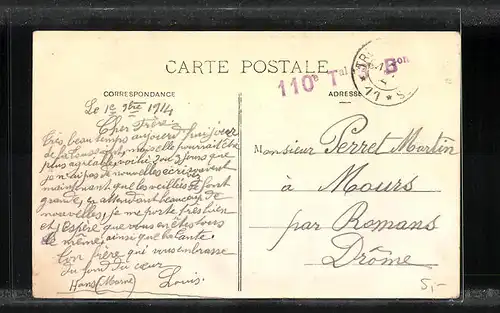 CARTE POSTALE
110e Tal Bon
TR
11 * S
CORRESPONDANCE
ADRESSE
Le 1e 9bre 1914
Cher Frère.
Très beau temps aujourd'hui jour
de la Toussaint, mais elle pourrait être
plus agréable, voici 3 jours que
je n'ai pas de nouvelles écris souvent
maintenant que les veillées se font
grande, en attendant beaucoup de
nouvelles, je me porte très bien
et j'espère que vous en êtes tous
de même, ainsi que la tante.
Ton frère qui vous embrasse
du fond du cœur
Louis.
Hans (Marne)
Monsieur Perret Martin
à Mours
par Romans
Drôme
5,-